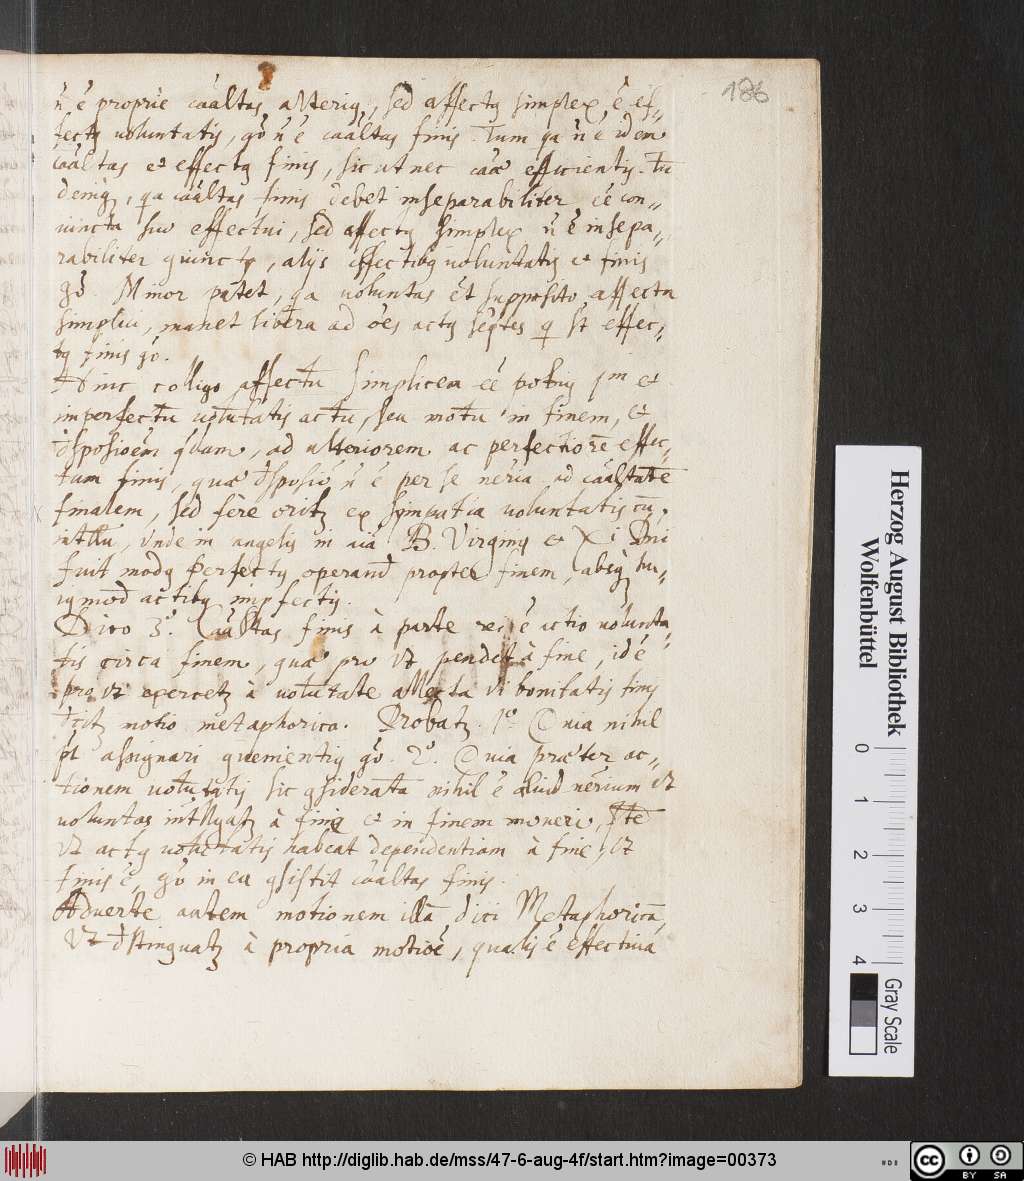 186
n̄ ē proprie cāaltas alterius, sed affectus simplex ē ef„
fectus voluntatis, gō n̄ ē cāaltas finis. Tum qa n̄ ē idem
cāaltas et effectus finis, sicut nec cāa efficientis. Tū
deniq, qa cāaltas finis debet inseparabiliter ēē con„
iuncta suo effectui, sed affectus simplex n̄ ē insepa„
rabiliter giunctus, alijs effectibus voluntatis et finis
gō. Minor patet, qa voluntas ēt supposito affectu
simplici, manet libera ad ōes actus seqtes q st effec„
tus finis gō.
Hinc colligo affectū simplicem ēē potius et
imperfectū volūtatis actū, seu motū in finem, et
dsposioēm quam, ad ulteriorem ac perfectiorē effec„
tum finis, quæ dsposiō n̄ ē per se neria ad cāalitatē
finalem, sed fere oritur ex voluntatis cū
intllu, Unde in angelis in aīa B. Virginis et Xi Dni
fuit modus perfectus operand propter finem, absq hu„
iqmod actibus impfectis.
Dico 3°. Cāaltas finis à parte rei ē actio volunta„
tis circa finem, quæ pro ut pendet à fine, id ē
pro ut exercetur à volūtate allecta vi bonitatis finis
dcitur motio metaphorica. Probatur. 1° Quia nihil
pt assignari guenientius gō. 2°. Quia præter ac„
tionem volūtatis sic gsideratā nihil ē aliud nerium ut
voluntas intllgatur à fine et in finem moveri,
ut actus volūtatis habeat dependentiam à fine, ut
finis ē, gō in ea gsistit cāaltas finis.
Adverte autem motionem illā dici Metaphoricā,
Ut dstinguatur à propria motioē, qualis ē effectiva
Herzog August Bibliothek
Wolfenbüttel
0 1 2 3 4
Gray Scale
© HAB http://diglib.hab.de/mss/47-6-aug-4f/start.htm?image=00373
cc BY SA